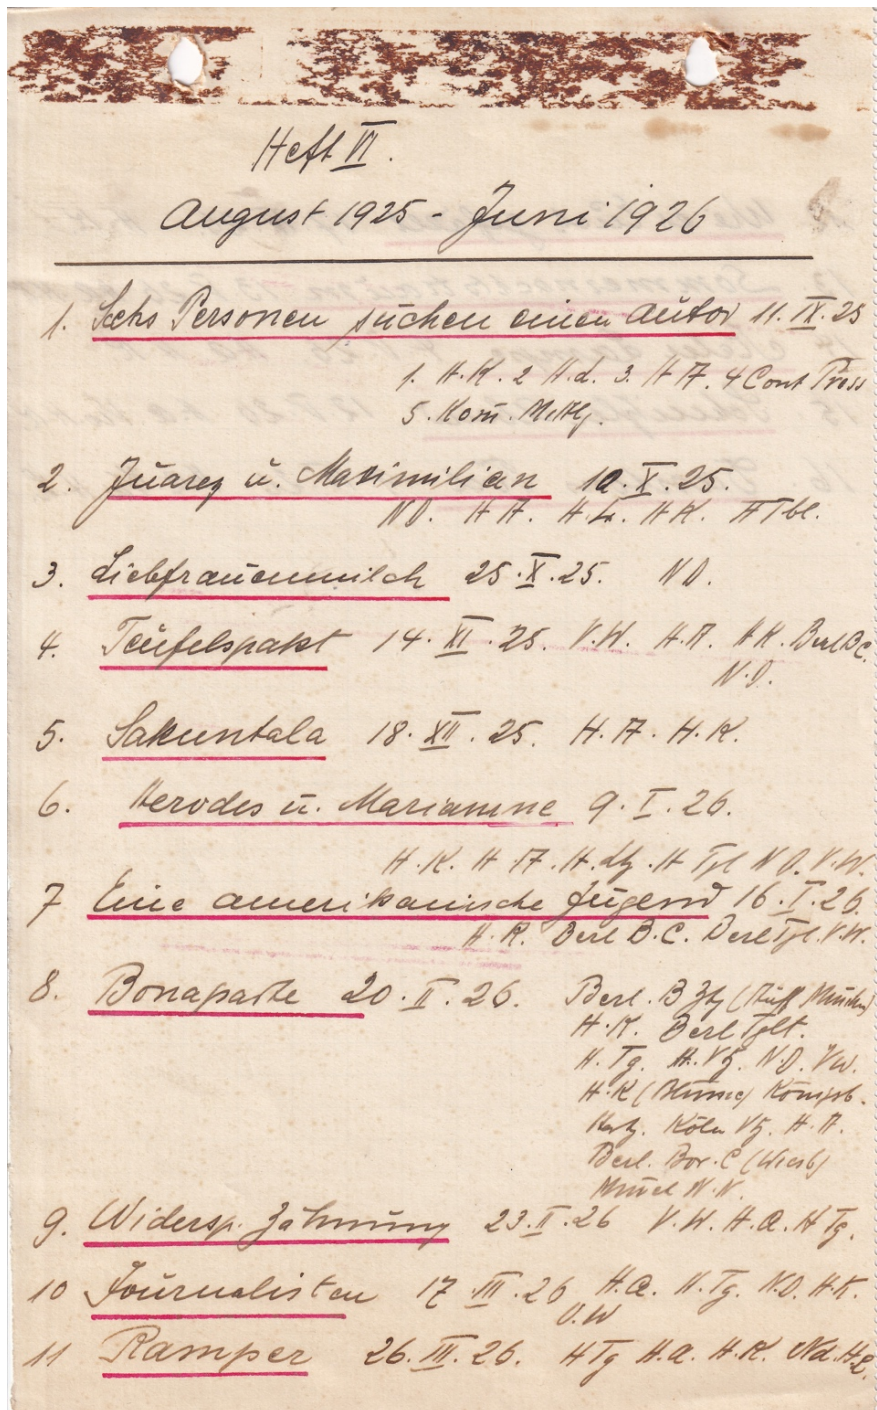 Heft VI.
August 1925 - Juni 1926
1. Sechs Personen suchen einen Autor 11. IX. 25
1. H.K. 2 H.d. 3. H A. 4 Cont Press
5. Kom.
2. Juarez u. Maximilian 10. X. 25.
N D. H A. H.L. H K. H Tbl.
3. Liebfrauenmilch 25. X. 25. N D.
4. Teufelspakt 14. XI. 25. V.W. H.A. H K. Berl B C.
N.D.
5. Sakuntala 18. XII. 25. H. A. H. K.
6. Herodes u. Mariamne 9. I. 26.
H. K. H A. H. H Tgl N D. V.W.
7 Eine amerikanische Jugend 16. I. 26.
H. K. Berl B.C. Berl Tgl. V.W.
8. Bonaparte 20. II. 26. Berl. B Ztg
H.K. Berl Tglt.
H. Tg. N.D. Vw.
H.K Königsb.
Köln H. A.
Berl. Bör. C
N.N.
9. Widersp. Zähmung 23. II. 26 V.W. H.A. H Tg.
10 Journalisten 17 III. 26 H.A. H.Tg. N.D. H.K.
V.W
11 Ramper 26. III. 26. H Tg H.A. H.K. Nd. H.L.